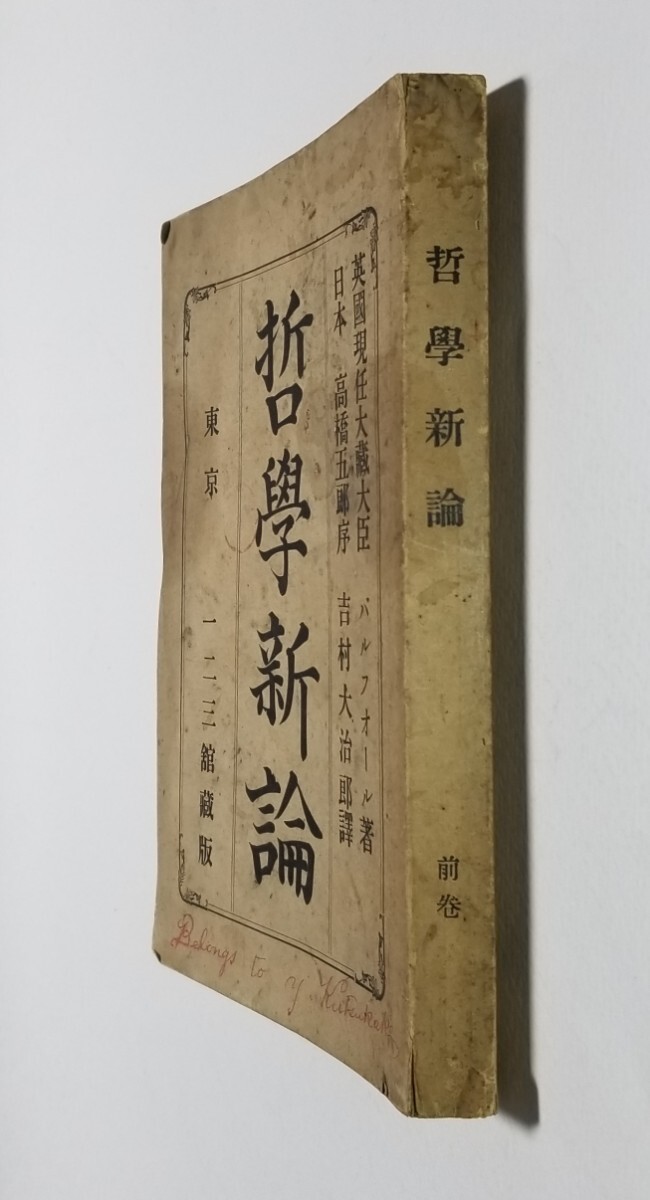 英國現任大藏大臣 バルフオール著
日本 高橋五郎序 吉村大治郎譯
哲學新論
東京 一二三館藏版
Belongs to Y.
哲學新論 前卷